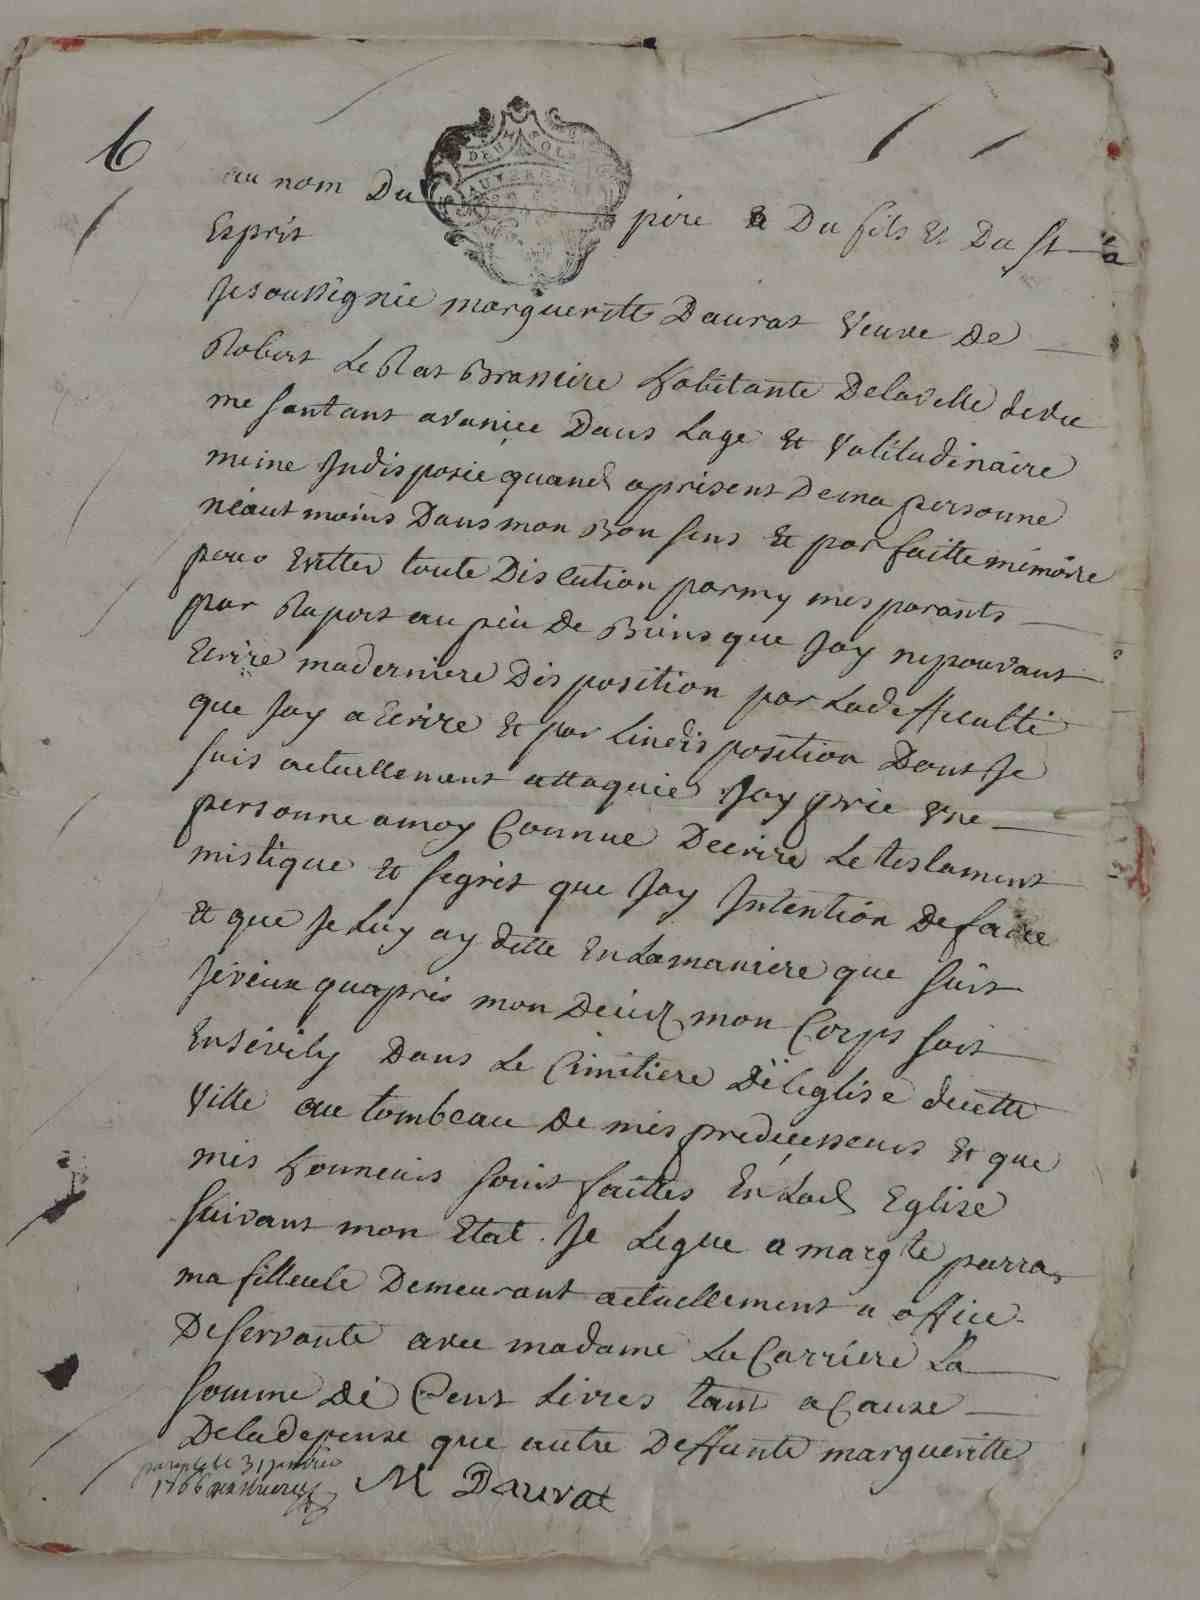 6
au nom Du père Et Du fils Et Du St
Esprit
Je soussignée margueritte Daurat veuve De
Robert Le Rat Brassière habitante Delaville
me santant avancée Dans Lage Et valitudinaire
meme Indisposée quand aprésent Dema personne
néantmoins Dans mon Bon sens Et parfaitte mémoire
pour Evitter toute Discution parmy mes parants
par Raport au péu De Biens que Jay ne pouvant
Ecrire maderniere Disposition par Ladifficulté
que Jay a Ecrire Et par Lindisposition Dont Je
suis actuellement attaquée Jay prié Une
personne amoy Connue Decrire Le testament
mistique Et segret que Jay Intention De faire
Et que Je Luy ay dette En Lamaniere que suit
Jeveux quapres mon Décéz mon Corps soit
Ensévély Dans Le Cimitiere Déleglise decette
Ville au tombeau De mes prédécesseurs Et que
mes honneurs soint faittes En Lad Eglise
suivant mon Etat. Je Legue a margte
ma filleule Demeurant actuellement a office
De servante avec madame La Carriere La
somme De Cent Livres tant a Cause
Deladepense que autre Deffunte margueritte
M Daurat
31 janvier
1766